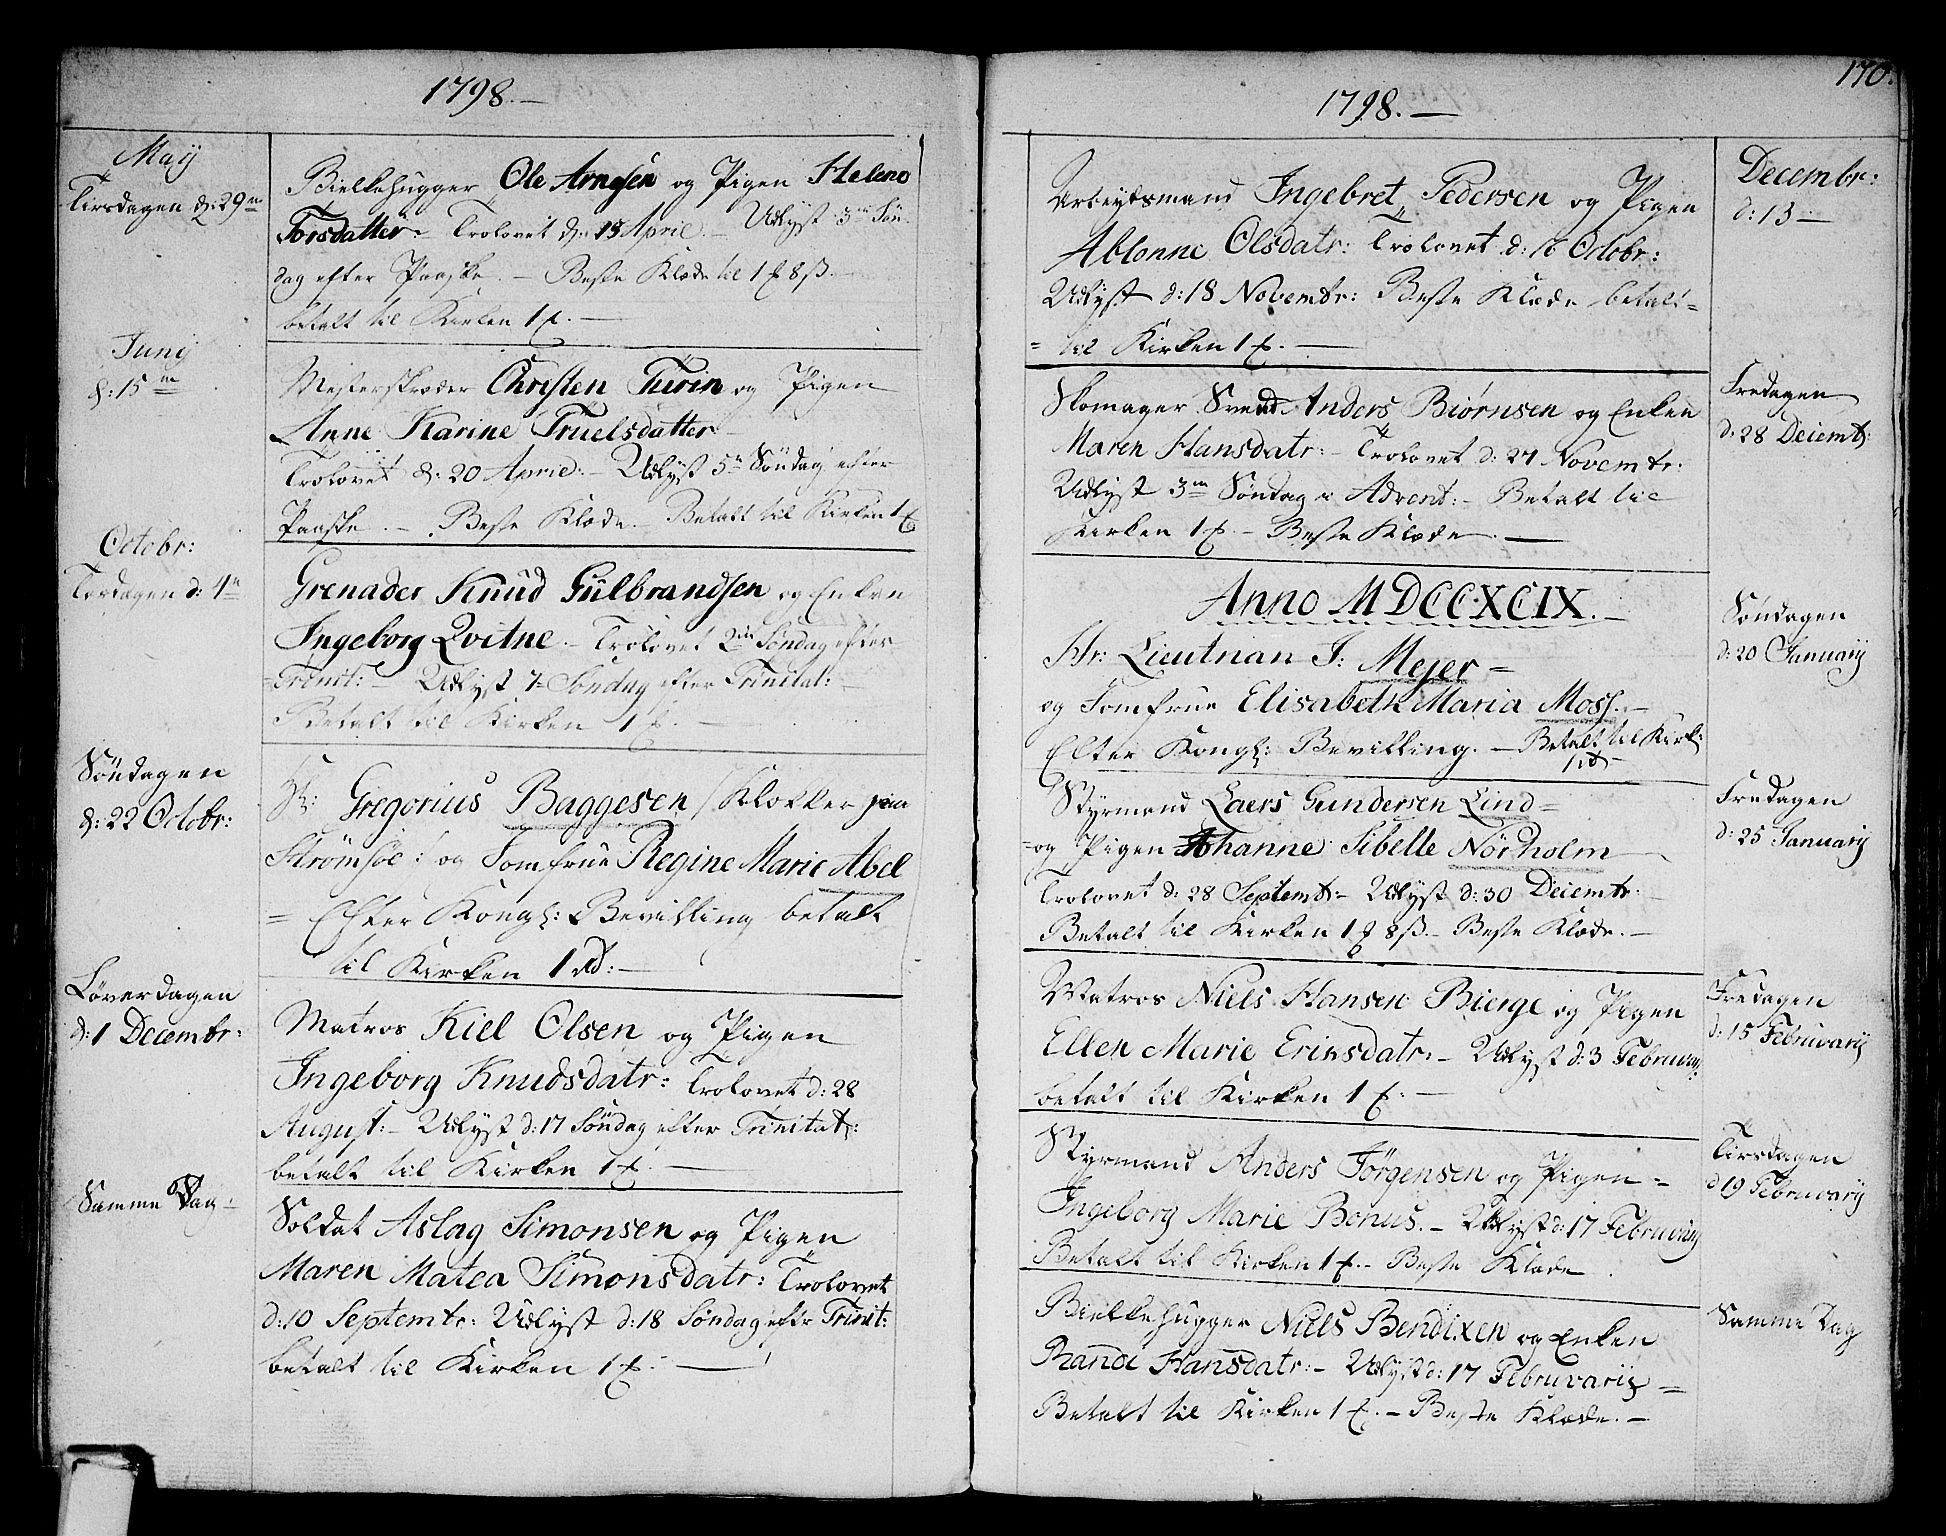 1798.
May
Tirsdagen d: 29n
Bielkehugger Ole Arnesen og Pigen Helene
Torsdatter Trolovet d: 13 April. Udlyst 3die Søn
dag efter Paaske. Beste Klæde til 1 f 8 ß.
betalt til Kirken 1 f.
Junij
d: 15n
Mesterskræder Christen Türin og Pigen
Anne Karine Truelsdatter
Trolovet d. 20 April: Udlyst 5n Søndag efter
Paaske. Beste Klæde. Betalt til Kirken 1 f
Octobr:
Torsdagen d: 4n
Grenader Knud Gülbrandsen og Enken
Ingeborg Qvitne. Trolovet 2den Søndag efter
Trinit: Udlyst 7 Søndag efter Trinitat:
Betalt til Kirken 1 f.
Søndagen
d: 22 Octobr:
Hr: Gregorius Baggesen /Klokker paa
Strømsøe: og Jomfrue Regine Marie Abel
= Efter Kongl: Bevilling betalt
til Kirken 1 rd:
Løverdagen
d: 1 Decembr:
Matros Kiel Olsen og Pigen
Ingeborg Knudsdatr: Trolovet d: 28
August: Udlyst d: 17 Søndag efter Trinitat:
betalt til Kirken 1 f.
Samme Dag
Soldat Aslag Simonsen og Pigen
Maren Matea Simonsdatr: Trolovet
d: 10 Septembr: Udlyst d: 18 Søndag eftr Trinit:
betalt til Kirken 1 f.
170.
1798.
Decembr:
d: 13
Arbeydsmand Ingebret Pedersen og Pigen
Ablonne Olsdatr: Trolovet d: 16 Octobr:
Udlyst d: 18 Novembr: Beste Klæde betalt
= til Kirken 1 f.
Fredagen
d: 28 Decemb:
Skomager Svend Anders Biørnsen og Enken
Maren Hansdatr: Trolovet d: 27 Novembr:
Udlyst 3n Søndag i Advent: Betalt til
Kirken 1 f. Beste Klæde.
Anno MDCCXCIX.
Søndagen
d: 20 January
Hr: Lieutnan J: Mejer =
og Jomfrue Elisabeth Maria Moss.
Efter Kongl: Bevilling. Betalt til Kirk:
1 rd
Fredagen
d: 25 January
Styrmand Laers Gundersen Lind =
= og Pigen Johanne Sibelle Nörholm
Trolovet d: 28 Septemb: Udlyst d: 30 Decembr:
Betalt til Kirken 1 f 8 ß. Beste Klæde.
Fredagen
d: 15 Februarij
Matros Niels Hansen Bierge og Pigen
Ellen Marie Ericsdatr. Udlyst d: 3 Februarij
betalt til Kirken 1 f.
Tirsdagen
d 19 Februarij
Styrmand Anders Jörgensen og Pigen =
Ingeborg Marie Bonus. Udlyst d: 17 Februarij
Betalt til Kirken 1 f. Beste Klæde
Samme Dag
Bielkehugger Niels Bendixen og Enken
Randi Hansdatr: Udlyst d: 17 Februarij =
Betalt til Kirken 1 f. Beste Klæde.